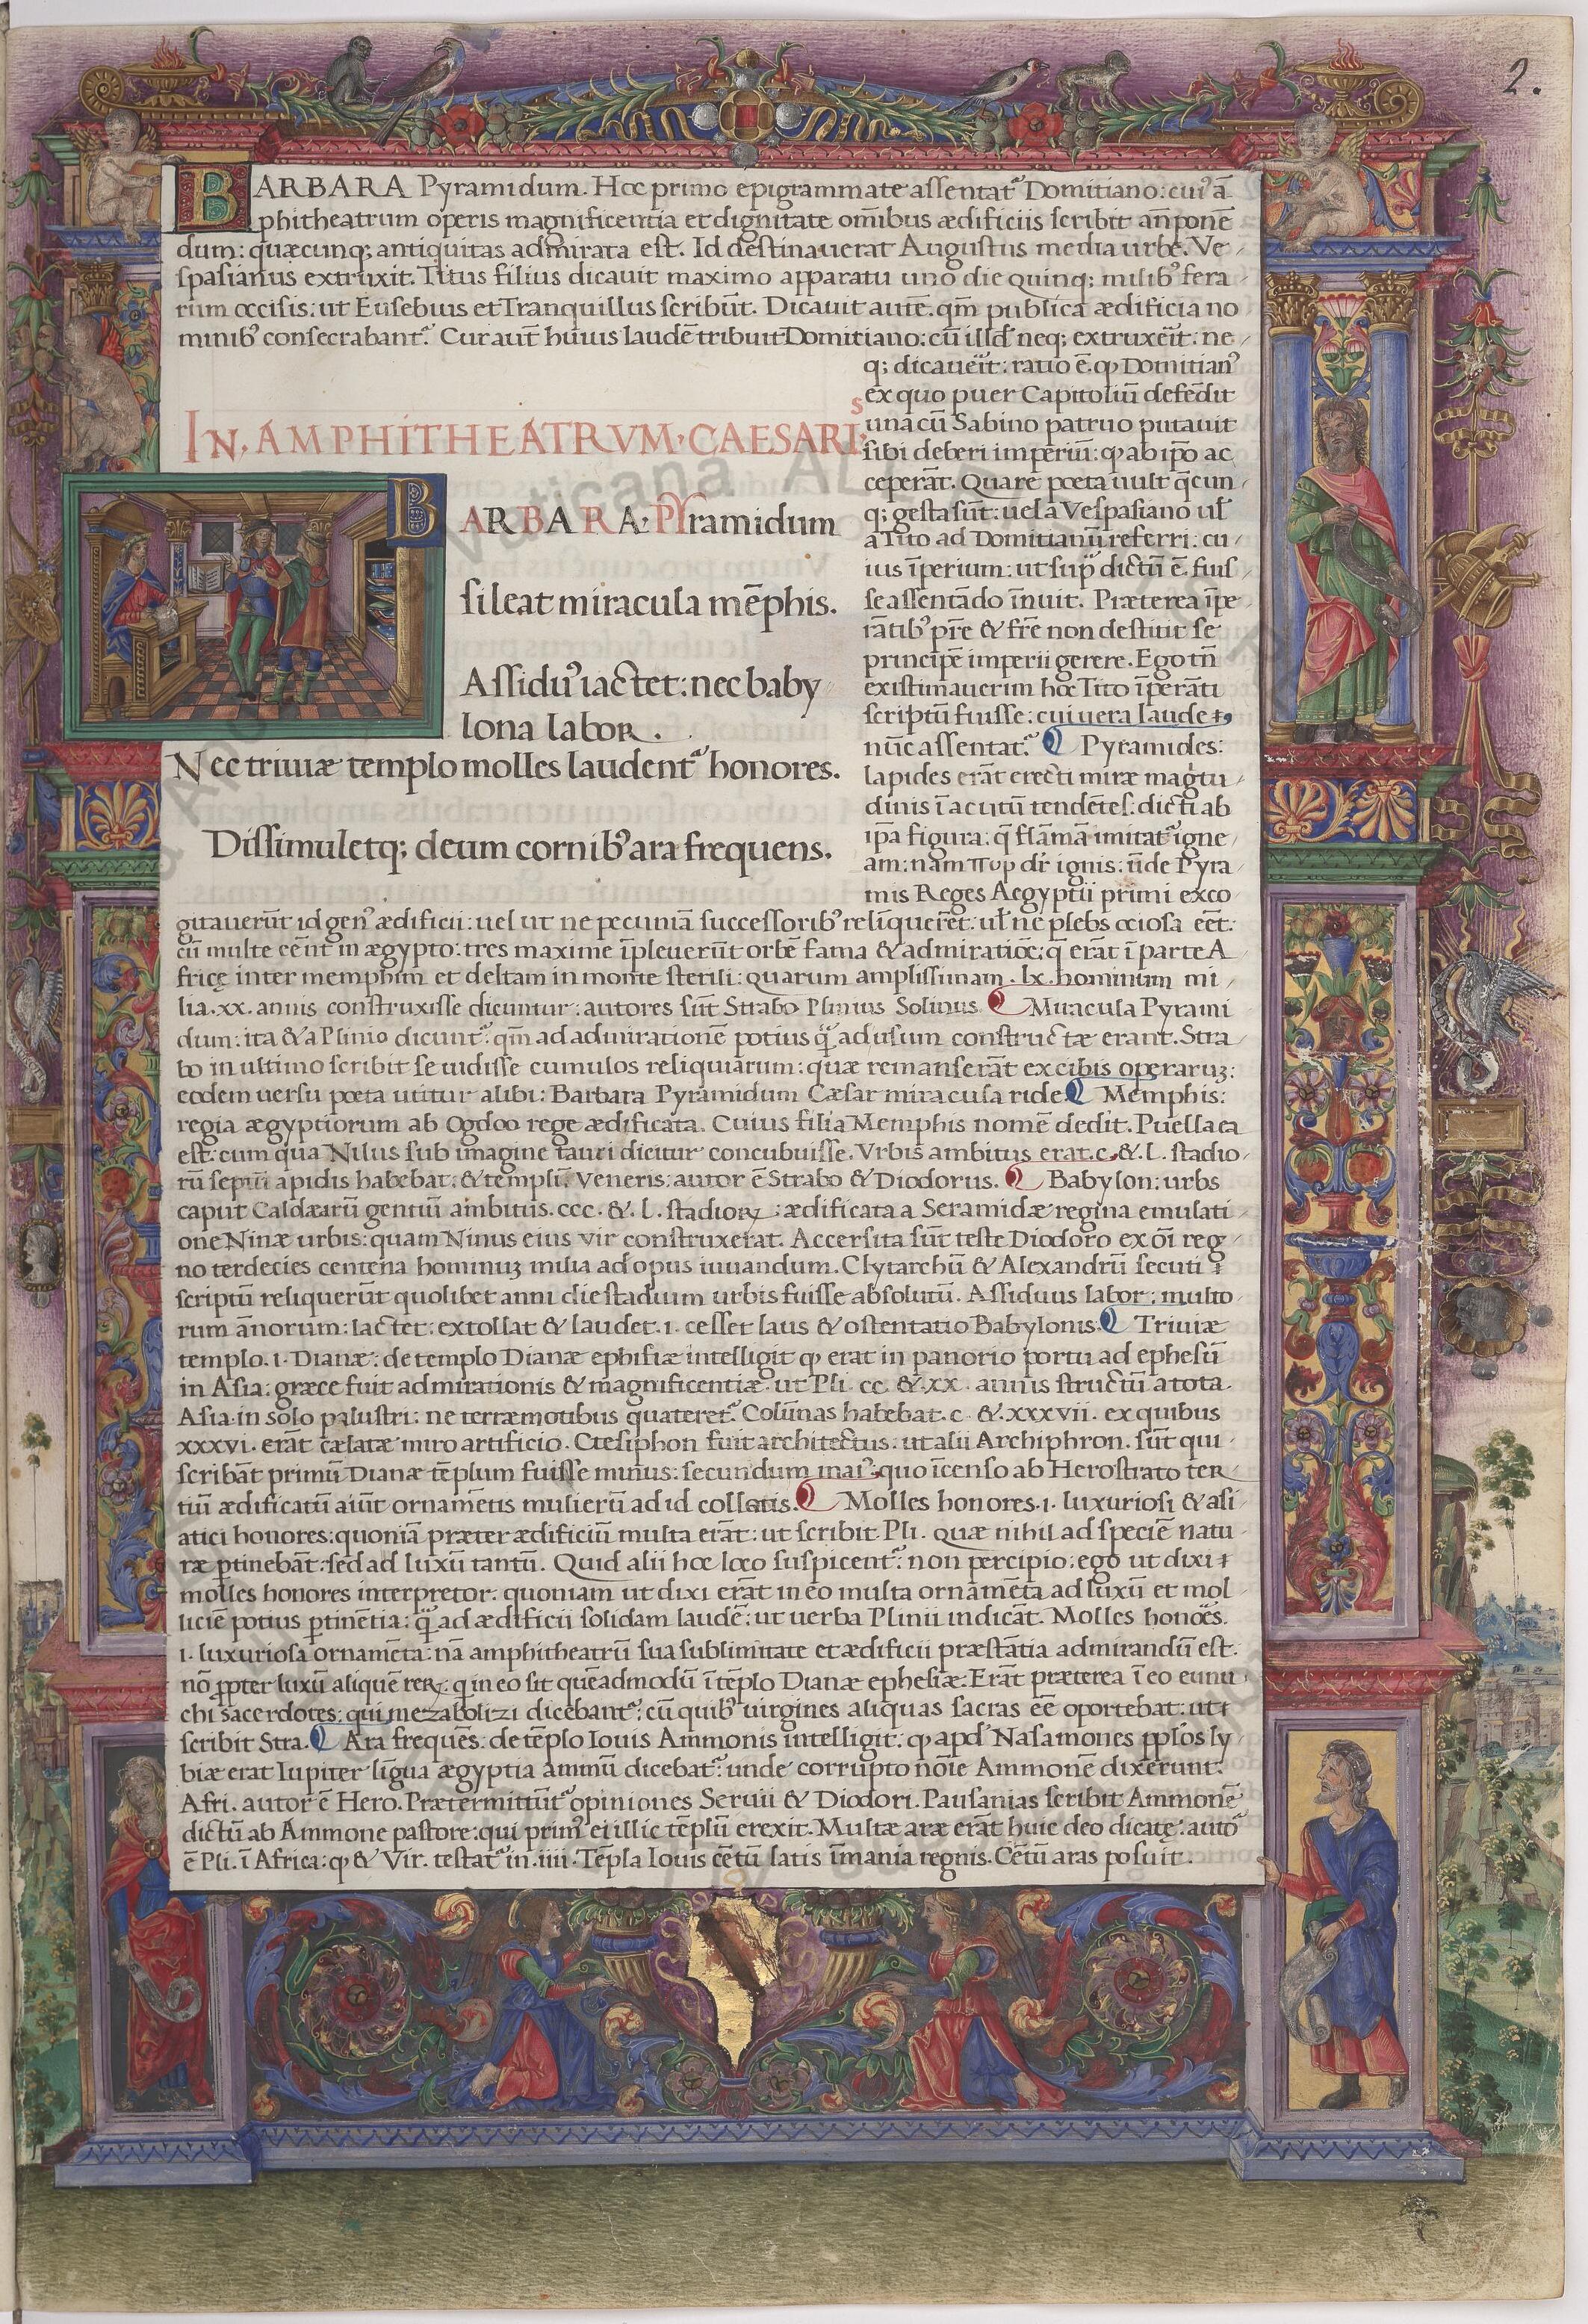 2.
BARBARA Pyramidum. Hoc primo epigrammate assentat᷑ Domitiano: cuiꝰ ā
phitheatrum operis magnificentia et dignitate om̄ibus ædificiis scribit an̄ponē
dum: quæcunq; antiquitas admirata est. Id destinauerat Augustus media urbe. Ve
spasianus extruxit. Titus filius dicauit maximo apparatu uno die quinq; milibꝰ fera
rum occisis: ut Eusebius et Tranquillus scribūt. Dicauit autē. qm̄ publica ædificia no
minibꝰ consecrabant᷑. Cur aut̄ huius laudē tribuit Domitiano: cū illd̄ neq; extruxeīt: ne
q; dicaueīt: ratio ē. ꝙ Domitianꝰ
ex quo puer Capitoliū defēdit
una cū Sabino patruo putauit
sibi deberi imperiū: ꝙ ab ip̄o ac
ceperāt. Quare poeta uult q̄cun
q; gesta sūt: uel a Vespasiano ul̄
a Tito ad Domitianū referri: cu
ius īperium: ut sup̄ dictū ē. fuis
se assentādo īnuit. Præterea īpe
rātibꝰ pr̄e & fr̄e non destitit se
principē imperii gerere. Ego tn̄
existimauerim hoc Tito īperāti
scriptū fuisse: cui uera laude ⁊
nūc assentat᷑. Pyramides:
lapides erāt erecti miræ magītu
dinis ī acutū tendētes: dicti ab
ip̄a figura: q̄ flāmā imitat᷑ igne
am: nam πυρ dr̄ ignis: ūde Pyra
mis Reges Aegyptii primi exco
IN. AMPHITHEATRVM. CAESARIS
BARBARA. PYramidum
sileat miracula mēphis.
Assiduꝰ iactet: nec baby
lona labor.
Nec triuiæ templo molles laudent᷑ honores.
Dissimuletq; deum cornibꝰ ara frequens.
gitauerūt id genꝰ ædificii: uel ut ne pecuniā successoribꝰ relīquerēt: ul̄ ne plebs ociosa eēt:
cū multe eēnt in ægypto: tres maxime īpleuerūt orbē fama & admiratiōe: q̄ erāt ī parte A
fricę inter memphim et deltam in monte sterili: quarum amplissimam. lx. hominum mi
lia. xx. annis construxisse dicuntur: autores sūt Strabo Plinius Solinus. Miracula Pyrami
dum: ita & a Plinio dicunt᷑. qm̄ ad admirationē potius q̄ ad usum constructæ erant. Stra
bo in ultimo scribit se uidisse cumulos reliquiarum: quæ remanserāt ex cibis operaruꝫ:
eodem uersu poeta utitur alibi: Barbara Pyramidum Cæsar miracula ride. Memphis:
regia ægyptiorum ab Ogdoo rege ædificata. Cuius filia Memphis nomē dedit. Puella ea
est: cum qua Nilus sub imagine tauri dicitur concubuisse. Vrbis ambitus erat. c. & . l. stadio
rū sepūi apidis habebat: & templū Veneris: autor ē Strabo & Diodorus. Babylon: urbs
caput Caldæarū gentiū ambitus. ccc. & . l. stadioꝝ: ædificata a Seramidæ regina emulati
one Ninæ urbis: quam Ninus eius vir construxerat. Accersita sūt teste Diodoro ex oī reg
no terdecies centena hominuꝫ milia ad opus iuuandum. Clytarchū & Alexandrū secuti ⁊
scriptū reliquerūt quolibet anni die stadium urbis fuisse absolutū. Assiduus labor: multo
rum ānorum: Iactet: extollat & laudet. i. cesset laus & ostentatio Babylonis. Triuiæ
templo. i. Dianæ: de templo Dianæ ephisiæ intelligit ꝙ erat in panorio portu ad ephesū
in Asia: græce fuit admirationis & magnificentiæ. ut Pli. cc. & . xx. annis structū a tota
Asia in solo palustri: ne terræmotibus quateret᷑. Colūnas habebat. c. & . xxxvii. ex quibus
xxxvi. erāt cælatæ miro artificio. Ctesiphon fuit architectus: ut alii Archiphron. sūt qui
scribāt primū Dianæ tēplum fuisse minus: secundum maiꝰ. quo īcenso ab Herostrato ter
tiū ædificatū aiūt ornamētis mulierū ad id collatis. Molles honores. i. luxuriosi & asi
atici honores: quoniā præter ædificiū multa erāt: ut scribit Pli. quæ nihil ad speciē natu
ræ ꝑtinebāt: sed ad luxū tantū. Quid alii hoc loco suspicent᷑: non percipio: ego ut dixi ⁊
molles honores interpretor: quoniam ut dixi erāt in eo multa ornamēta ad luxū et mol
liciē potius ꝑtinētia: q̄ ad ædificii solidam laudē: ut uerba Plinii indicāt. Molles honoēs.
i. luxuriosa ornamēta: nā amphitheatrū sua sublimitate et ædificii præstātia admirandū est.
nō ꝓpter luxū aliquē reꝝ: q̄ in eo sit quēadmodū ī tēplo Dianæ ephesiæ. Erāt præterea ī eo eunu
chi sacerdotes: qui mezabolizi dicebant᷑: cū quibꝰ uirgines aliquas sacras eē oportebat: uti
scribit Stra. Ara frequēs: de tēplo Iouis Ammonis intelligit: ꝙ apd̄ Nasamones pp̄los ly
biæ erat Iupiter līgua ægyptia ammū dicebat᷑: unde corrupto nōie Ammonē dixerunt:
Afri. autor ē Hero. Prætermittūt᷑ opiniones Seruii & Diodori. Pausanias scribit Ammonē
dictū ab Ammone pastore: qui primꝰ ei illic tēplū erexit. Multæ aræ erāt huic deo dicatę: auto᷑
ē Pli. ī Africa: ꝙ & Vir. testat᷑ in. iiii. Tēpla Iouis cētū latis īmania regnis. Cētū aras posuit.